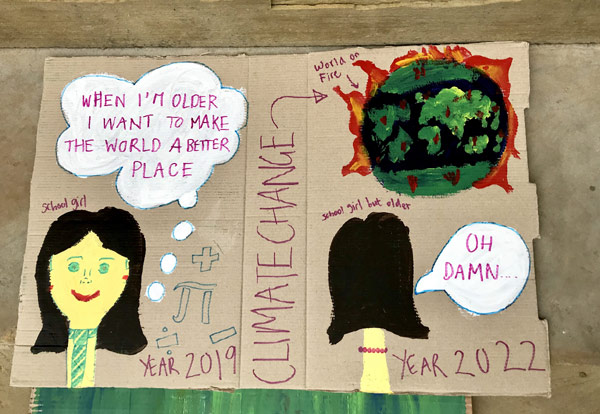 WHEN I'M OLDER
I WANT TO MAKE
THE WORLD A BETTER
PLACE
school girl
+
π
÷
−
YEAR 2019
CLIMATE CHANGE
World on
Fire
school girl but older
OH
DAMN....
YEAR 2022